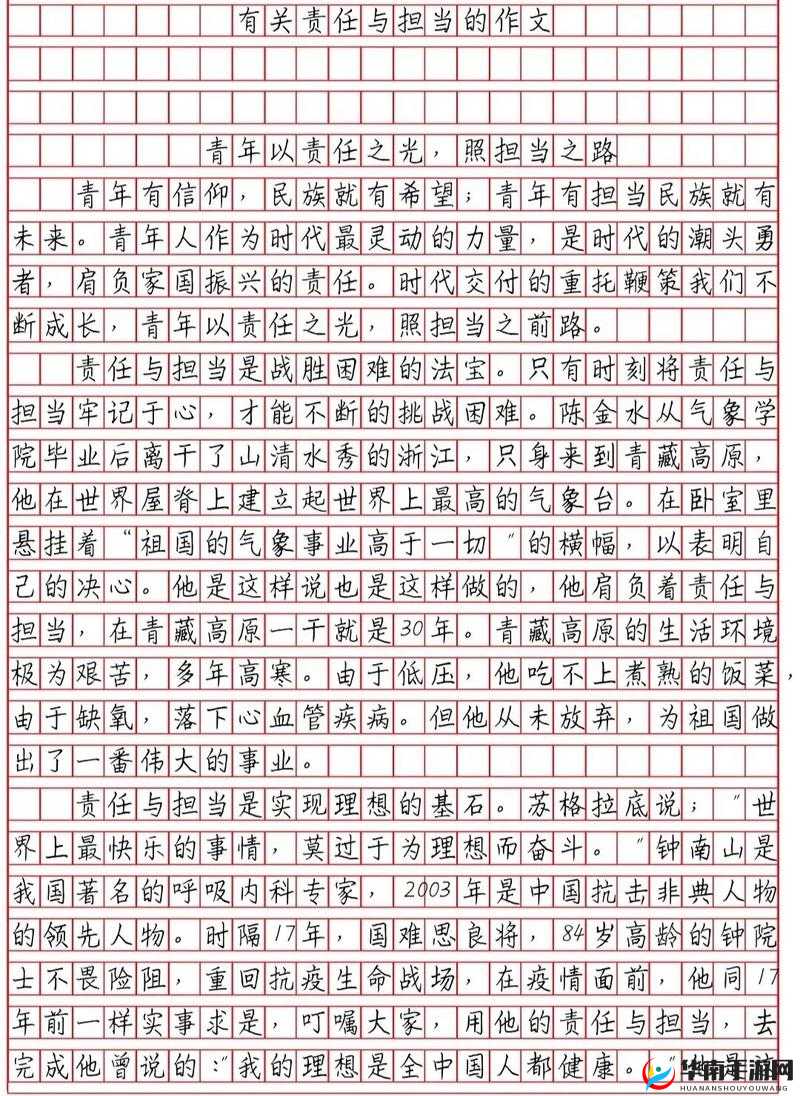 有关责任与担当的作文
青年以责任之光，照担当之路
青年有信仰，民族就有希望；青年有担当民族就有
未来。青年人作为时代最灵动的力量，是时代的潮头勇
者，肩负家国振兴的责任。时代交付的重托鞭策我们不
断成长，青年以责任之光，照担当之前路。
责任与担当是战胜困难的法宝。只有时刻将责任与
担当牢记于心，才能不断的挑战困难。陈金水从气象学
院毕业后离干了山清水秀的浙江，只身来到青藏高原，
他在世界屋脊上建立起世界上最高的气象台。在卧室里
悬挂着“祖国的气象事业高于一切”的横幅，以表明自
己的决心。他是这样说也是这样做的，他肩负着责任与
担当，在青藏高原一干就是30年。青藏高原的生活环境
极为艰苦，多年高寒。由于低压，他吃不上煮熟的饭菜，
由于缺氧，落下心血管疾病。但他从未放弃，为祖国做
出了一番伟大的事业。
责任与担当是实现理想的基石。苏格拉底说；“世
界上最快乐的事情，莫过于为理想而奋斗。”钟南山是
我国著名的呼吸内科专家，2003年是中国抗击非典人物
的领先人物。时隔17年，国难思良将，84岁高龄的钟院
士不畏险阻，重回抗疫生命战场，在疫情面前，他同17
年前一样实事求是，叮嘱大家，用他的责任与担当，去
完成他曾说的：“我的理想是全中国人都健康。
华南手游网
HUANANSHOUYOUWANG